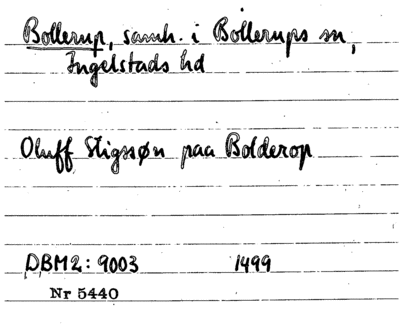 Bollerup, samh. i Bollerups sn,
Ingelstads hd
Oluff Stigssøn paa Bolderop
DBM2: 9003 1499
Nr 5440